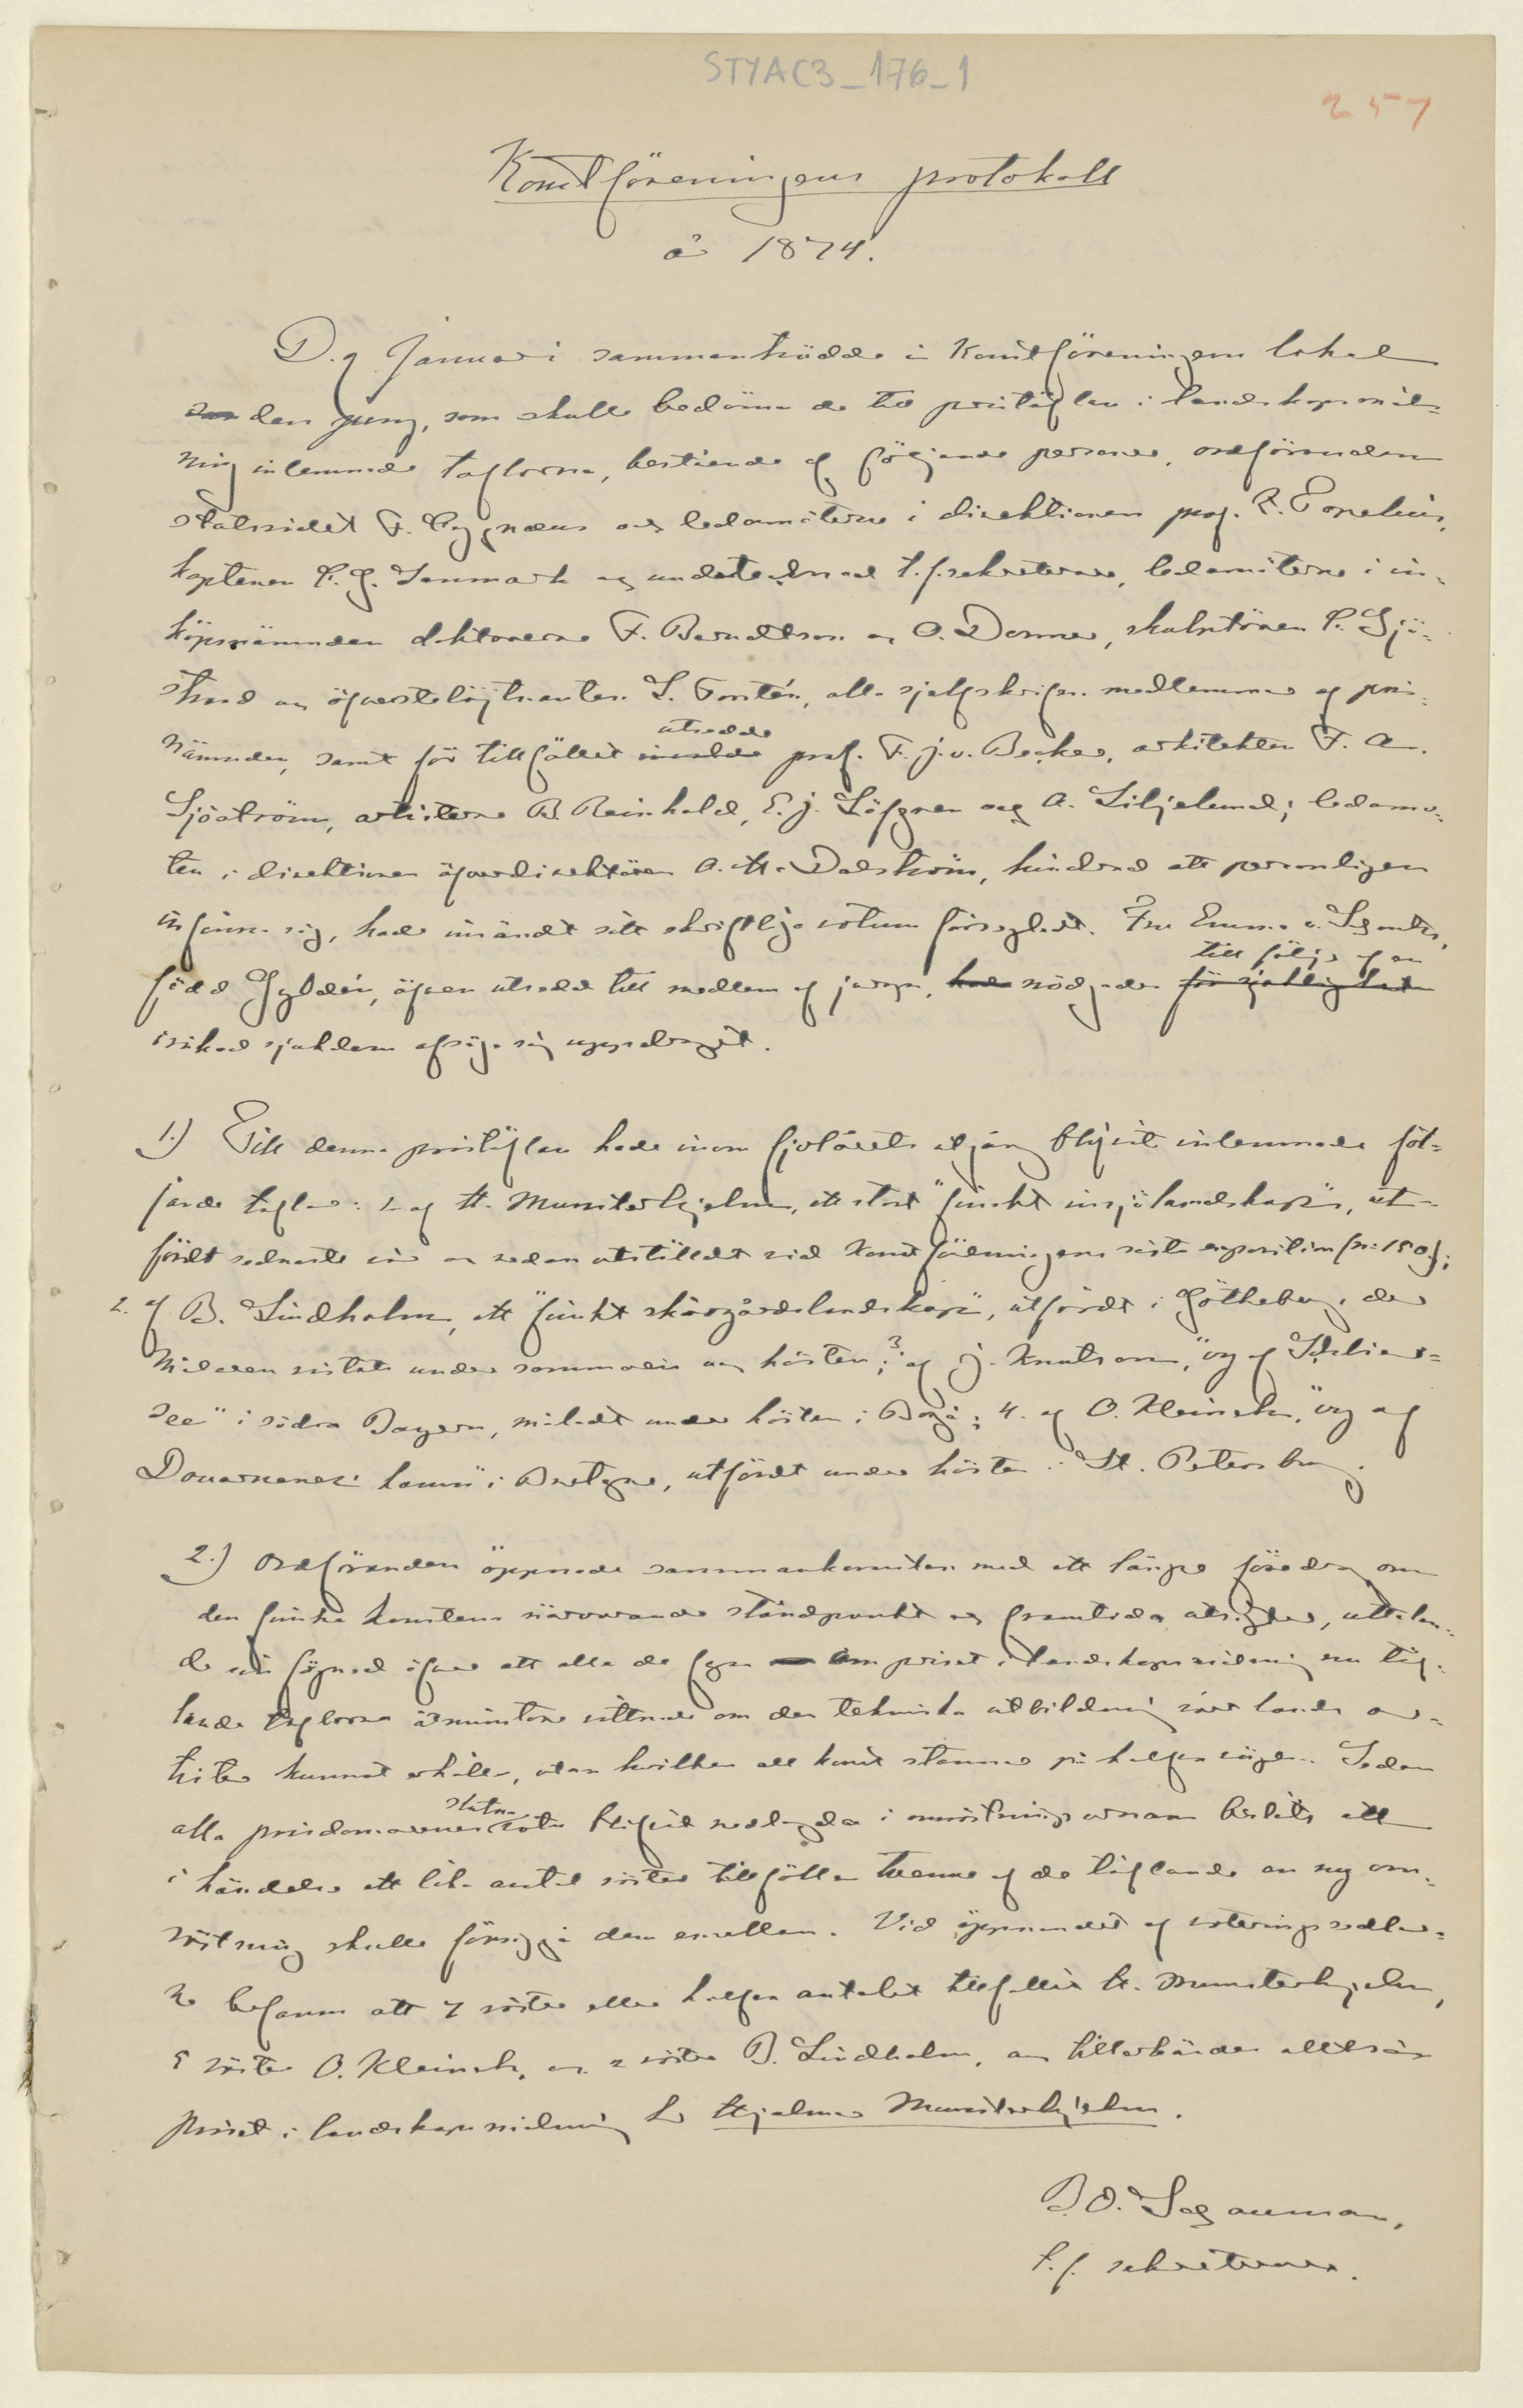 STYAC3_176_1
257
Konstföreningens protokoll
år 1874.
D. 9 Januari sammanträdde i Konstföreningens lokal
den jury, som skulle bedöma de till pristäflan i landskapsmål-
ning inlemnade taflorna, bestående af följande personer, ordföranden
statsrådet F. Cygnæus och ledamöterne i direktionen prof. Z. Topelius,
kaptenen C. G. Sanmark och undertecknad t.f. sekreterare, ledamöterne i in-
köpsnämnden doktorerne F. Berndtson och O. Donner, skulptören C. Sjö-
strand och öfverstelöjtnanten L. Forstén, alla sjelfskrifne medlemmar af pris-
utsedde
nämnden, samt för tillfället invalde prof. F. J. v. Becker, arkitekten F. A.
Sjöström, artisterne B. Reinhold, E. J. Löfgren och A. Liljelund; ledamo-
ten i direktionen öfverdirektören A. H. Dalström, hindrad att personligen
infinna sig, hade insändt sitt skriftliga votum försegladt. Fru Emma v.
till följe af en
född Gyldén, äfven utsedd till medlem af juryn, hade nödgades för sjuklighet
inträffad sjukdom afsäga sig uppdraget.
1.) Till denna pristäflan hade inom fjolårets utgång blifvit inlemnade föl-
jande taflor: 1. af H. Munsterhjelm, ett stort "finskt insjölandskap", ut-
fördt sednaste vår och redan utstäldt vid Konstföreningens sista exposition (n:o 180);
2. af B. Lindholm, ett "finskt skärgårdslandskap", utfördt i Götheborg, der
målaren vistats under sommaren och hösten; 3. af J. Knutson, "vy af Schlier-
see" i södra Bayern, måladt under hösten i Borgå; 4. af O. Kleineh, "vy af
Douarnenez' hamn" i Bretagne, utfördt under hösten i St. Petersburg.
2.) Ordföranden öppnade sammankomsten med ett längre föredrag om
den finska konstens närvarande ståndpunkt och framtida utsigter, uttalan-
de sin fägnad öfver att alla de fyra om priset i landskapsmålning nu täf-
lande taflorna åtminstone vittnade om den tekniska utbildning vårt lands ar-
tister kunnat erhålla, utan hvilken all konst stannar på halfva vägen. Sedan
slutna
alla prisdomarenes vota blifvit nedlagda i omröstningsurnan beslöts att
i händelse ett lika antal röster tillfölle tvenne af de täflande en ny om-
röstning skulle försiggå dem emellan. Vid öppnandet af voteringssedlar-
ne befanns att 7 röster eller halfva antalet tillfallit H. Munsterhjelm,
5 röster O. Kleineh, och 2 röster B. Lindholm, och tillerkändes alltså
priset i landskapsmålning hr Hjalmar Munsterhjelm.
B. O. Schauman,
t.f. sekreterare.